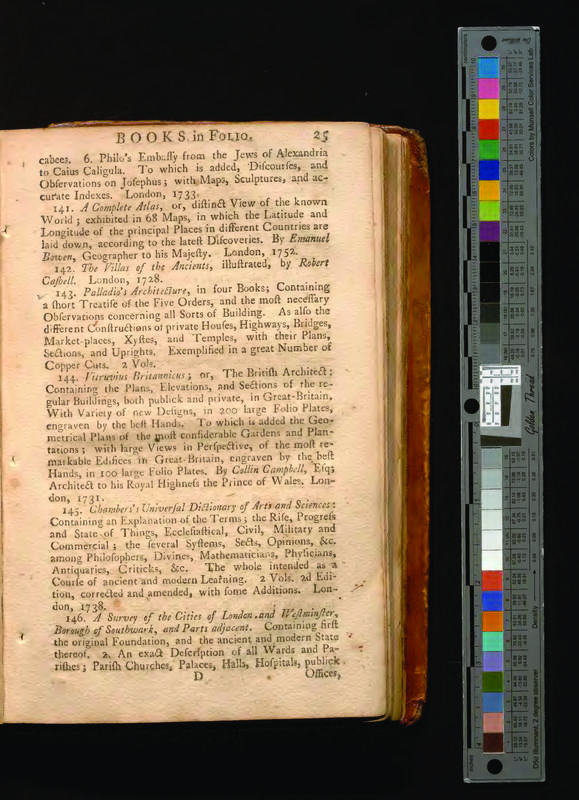 BOOKS in FOLIO. 25
cabees. 6. Philo's Embaſſy from the Jews of Alexandria
to Caius Caligula. To which is added, Diſcourſes, and
Obſervations on Joſephus; with Maps, Sculptures, and ac-
curate Indexes. London, 1733.
141. A Complete Atlas, or, diſtinct View of the known
World; exhibited in 68 Maps, in which the Latitude and
Longitude of the principal Places in different Countries are
laid down, according to the lateſt Diſcoveries. By Emanuel
Bowen, Geographer to his Majeſty. London, 1752.
142. The Villas of the Ancients, illuſtrated, by Robert
Caſtell. London, 1728.
143. Palladio's Architecture, in four Books; Containing
a ſhort Treatiſe of the Five Orders, and the moſt neceſſary
Obſervations concerning all Sorts of Building. As alſo the
different Conſtructions of private Houſes, Highways, Bridges,
Market-places, Xyſtes, and Temples, with their Plans,
Sections, and Uprights. Exemplified in a great Number of
Copper Cuts. 2 Vols.
144. Vitruvius Britannicus; or, The Britiſh Architect;
Containing the Plans, Elevations, and Sections of the re-
gular Buildings, both publick and private, in Great-Britain,
With Variety of new Deſigns, in 200 large Folio Plates,
engraven by the beſt Hands. To which is added the Geo-
metrical Plans of the moſt conſiderable Gardens and Plan-
tations; with large Views in Perſpective, of the moſt re-
markable Edifices in Great-Britain, engraven by the beſt
Hands, in 100 large Folio Plates. By Collin Campbell, Eſq;
Architect to his Royal Highneſs the Prince of Wales. Lon-
don, 1731.
145. Chambers's Univerſal Dictionary of Arts and Sciences:
Containing an Explanation of the Terms; the Riſe, Progreſs
and State of Things, Eccleſiaſtical, Civil, Military and
Commercial; the ſeveral Syſtems, Sects, Opinions, &c.
among Philoſophers, Divines, Mathematicians, Phyſicians,
Antiquaries, Criticks, &c. The whole intended as a
Courſe of ancient and modern Learning. 2 Vols. 2d Edi-
tion, corrected and amended, with ſome Additions. Lon-
don, 1738.
146. A Survey of the Cities of London and Weſtminſter,
Borough of Southwark, and Parts adjacent. Containing firſt
the original Foundation, and the ancient and modern State
thereof. 2. An exact Deſcription of all Wards and Pa-
riſhes; Pariſh Churches, Palaces, Halls, Hoſpitals, publick
D Offices,
Colors by Munsell Color Services Lab
Golden Thread
Density
D50 Illuminant, 2 degree observer